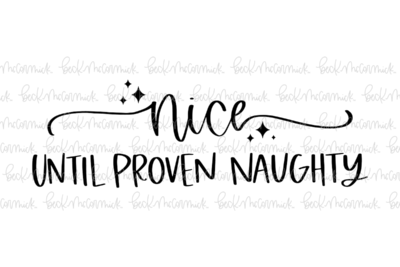 nice
UNTIL PROVEN NAUGHTY